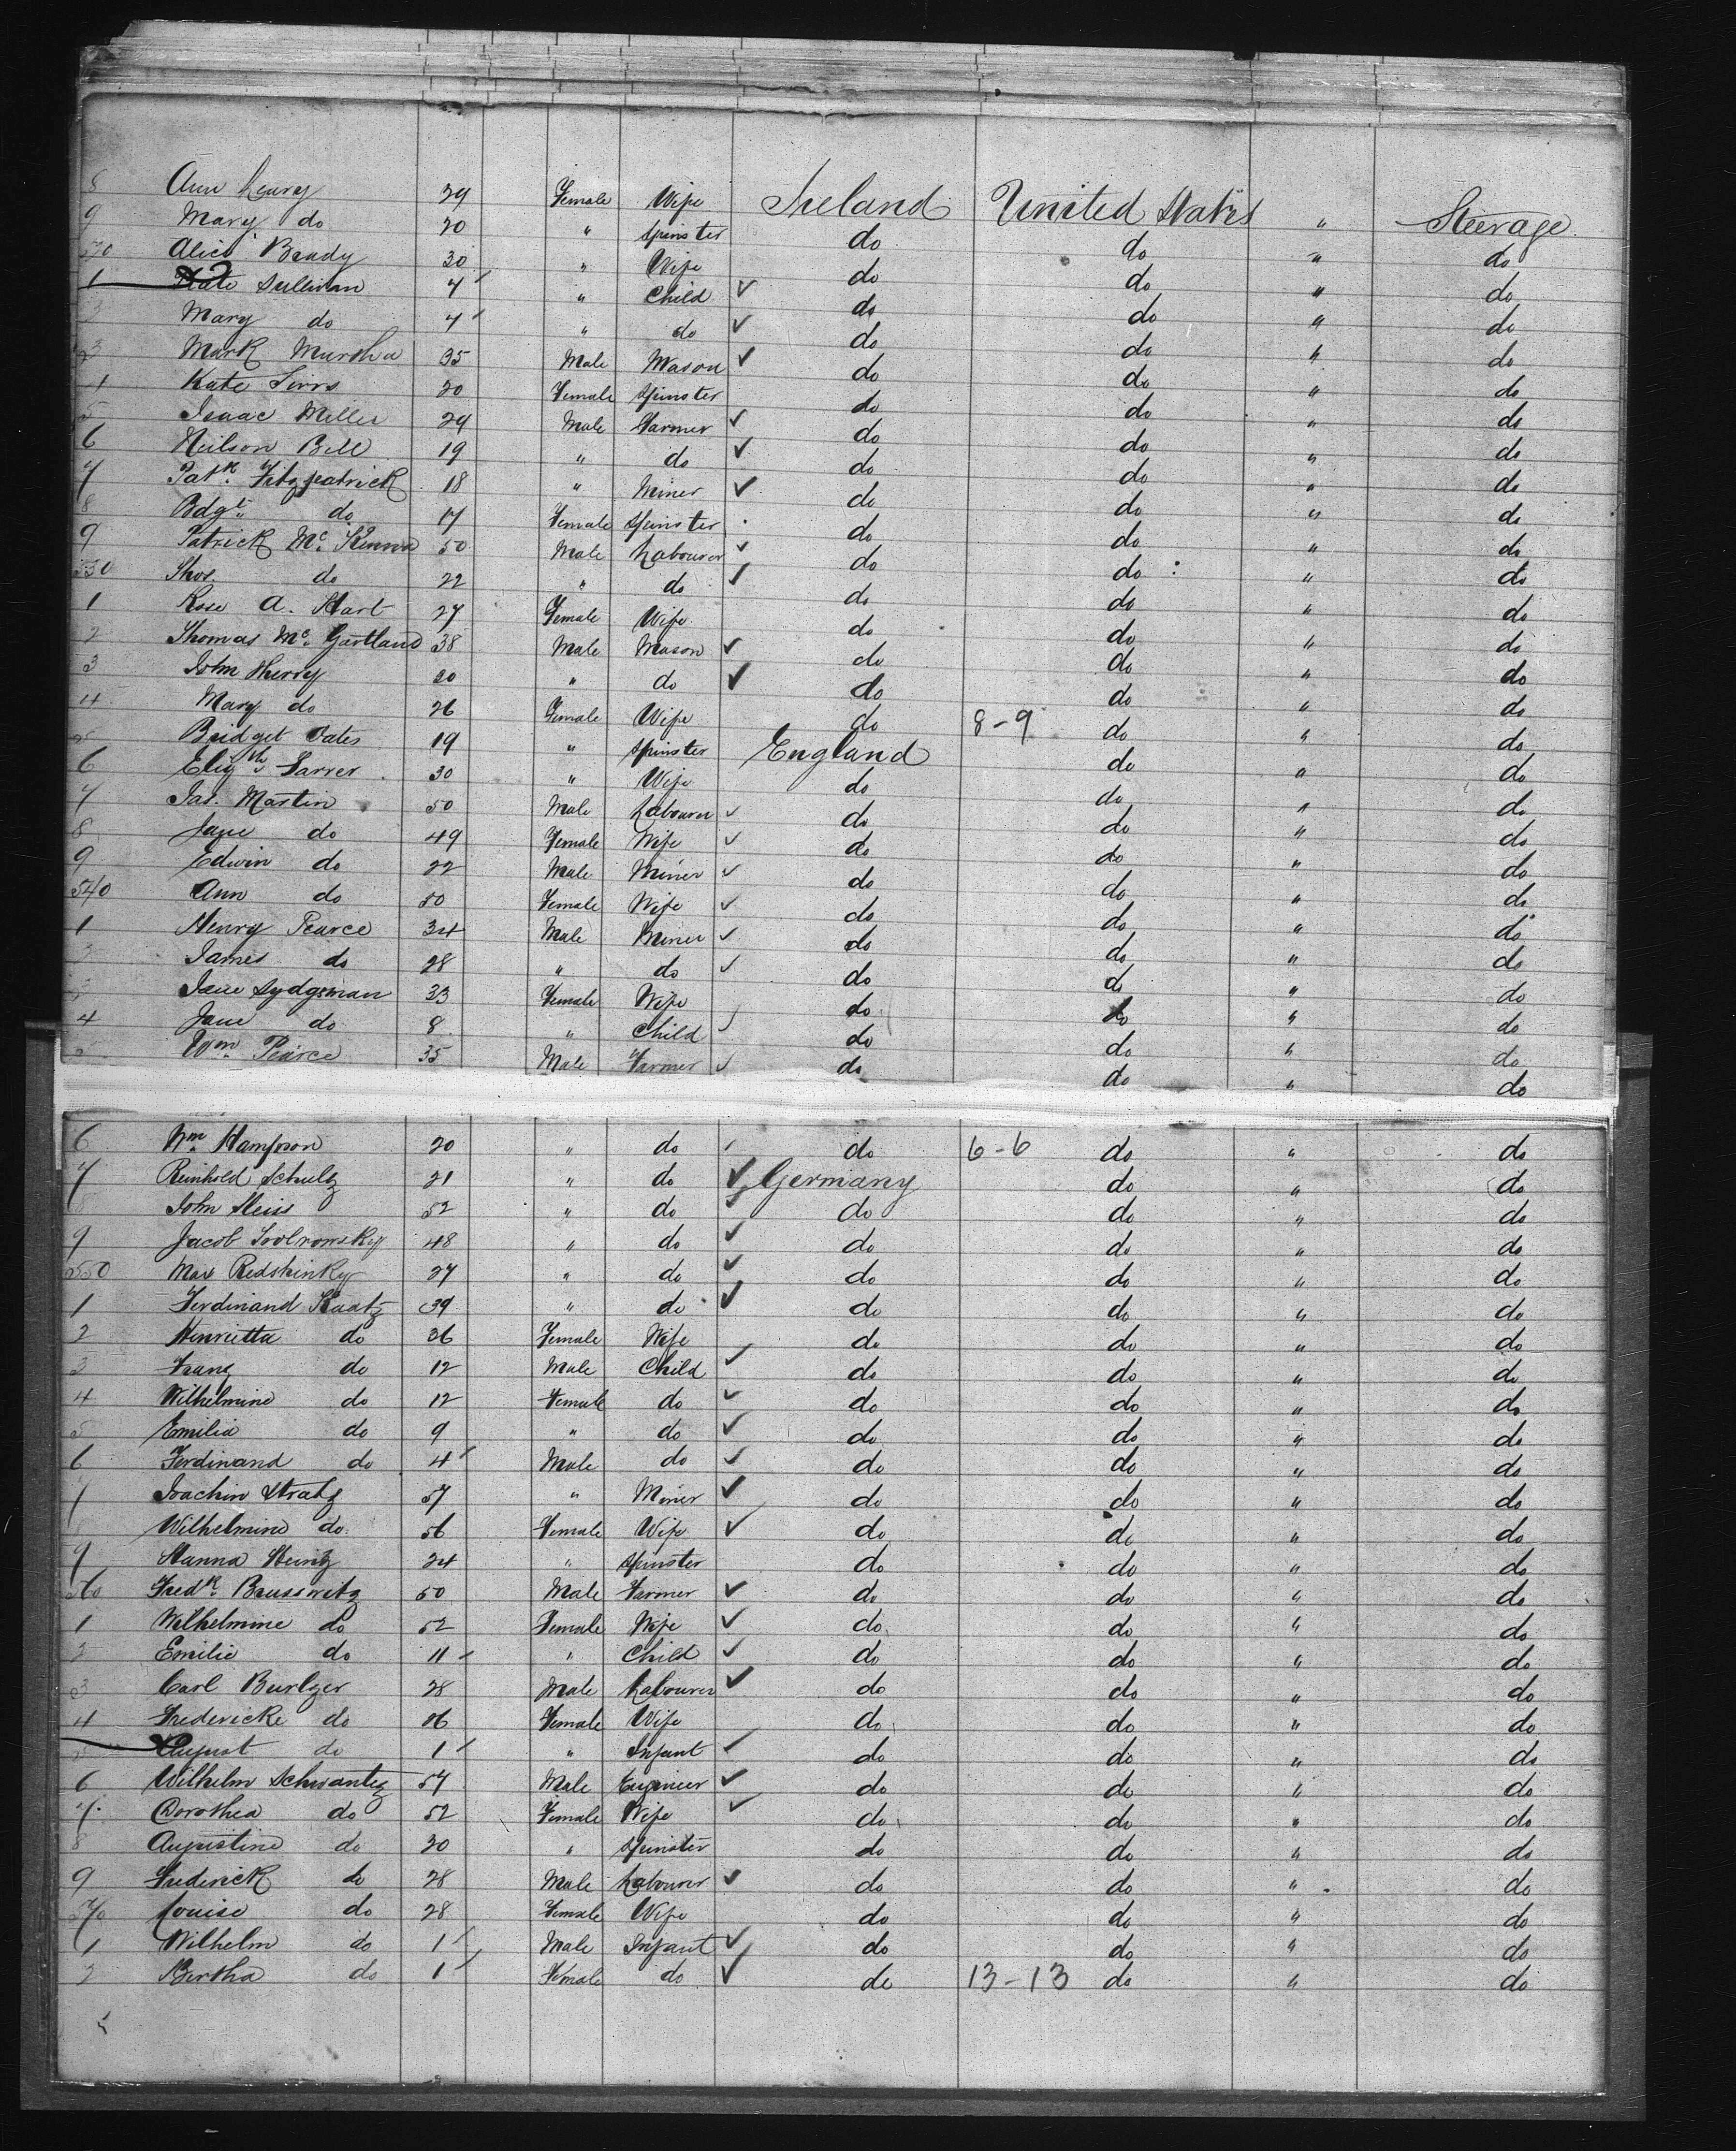 8 Ann Henry 29 Female Wife Ireland United States " Steerage
9 Mary do 20 " Spinster do do " do
Alice Brady 30 " Wife do do " do
1 Kate Sullivan 4 " Child do do " do
Mary do 4 " do do do " do
3 Mark Murtha 35 Male Mason do do " do
Kate 20 Female Spinster do do " do
5 Isaac Miller 29 Male Farmer do do " do
6 Neilson Bell 19 " do do do " do
7 Patk. Fitzpatrick 18 " Miner do do " do
8 Bdgt. do 17 Female Spinster do do " do
9 Patrick Mc. Kenna 50 Male Labourer do do " do
530 Thos. do 22 " do do do " do
1 Rose A. Hart 27 Female Wife do do " do
2 Thomas Mc. Gartland 38 Male Mason do do " do
3 John Sherry 20 " do do do " do
4 Mary do 26 Female Wife do 8-9 do " do
5 Bridget 19 " Spinster England do " do
6 Elizth 30 " Wife do do " do
7 Jas. Martin 50 Male Labourer do do " do
8 Jane do 49 Female Wife do do " do
9 Edwin do 22 Male Miner do do " do
540 Ann do 50 Female Wife do do " do
1 Henry Pearce 34 Male Miner do do " do
2 James do 28 " do do do " do
3 Jane Lydgman 33 Female Wife do do " do
4 Jane do 8 " Child do do " do
5 Wm. Pearce 35 Male Farmer do do " do
6 Wm. Hampson 20 " do do 6-6 do " do
7 Reinhold Schultz 21 " do Germany do " do
8 John 52 " do do do " do
9 Jacob 48 " do do do " do
550 Max Redshinky 27 " do do do " do
1 Ferdinand Kaatz 39 " do do do " do
2 Henrietta do 36 Female Wife do do " do
3 Franz do 12 Male Child do do " do
4 Wilhelmine do 12 Female do do do " do
5 Emilia do 9 " do do do " do
6 Ferdinand do 4 Male do do do " do
7 Joachim Stratz 57 " Miner do do " do
Wilhelmine do 56 Female Wife do do " do
9 Hanna Heintz 24 " Spinster do do " do
560 Fredk. Brusswitz 50 Male Farmer do do " do
1 Wilhelmine do 52 Female Wife do do " do
2 Emilie do 11 " Child do do " do
3 Carl Burtzer 28 Male Labourer do do " do
4 Fredericke do 26 Female Wife do do " do
5 August do 1 " Infant do do " do
6 Wilhelm Schwantz 54 Male Engineer do do " do
7 Dorothea do 52 Female Wife do do " do
8 Augustine do 20 " Spinster do do " do
9 Frederick do 28 Male Labourer do do " do
570 Louise do 28 Female Wife do do " do
1 Wilhelm do 1 Male Infant do do " do
2 Bertha do 1 Female do do 13-13 do " do